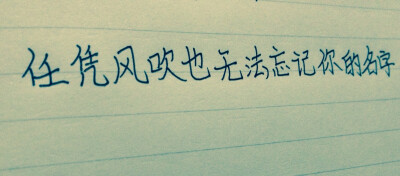 任凭风吹也无法忘记你的名字